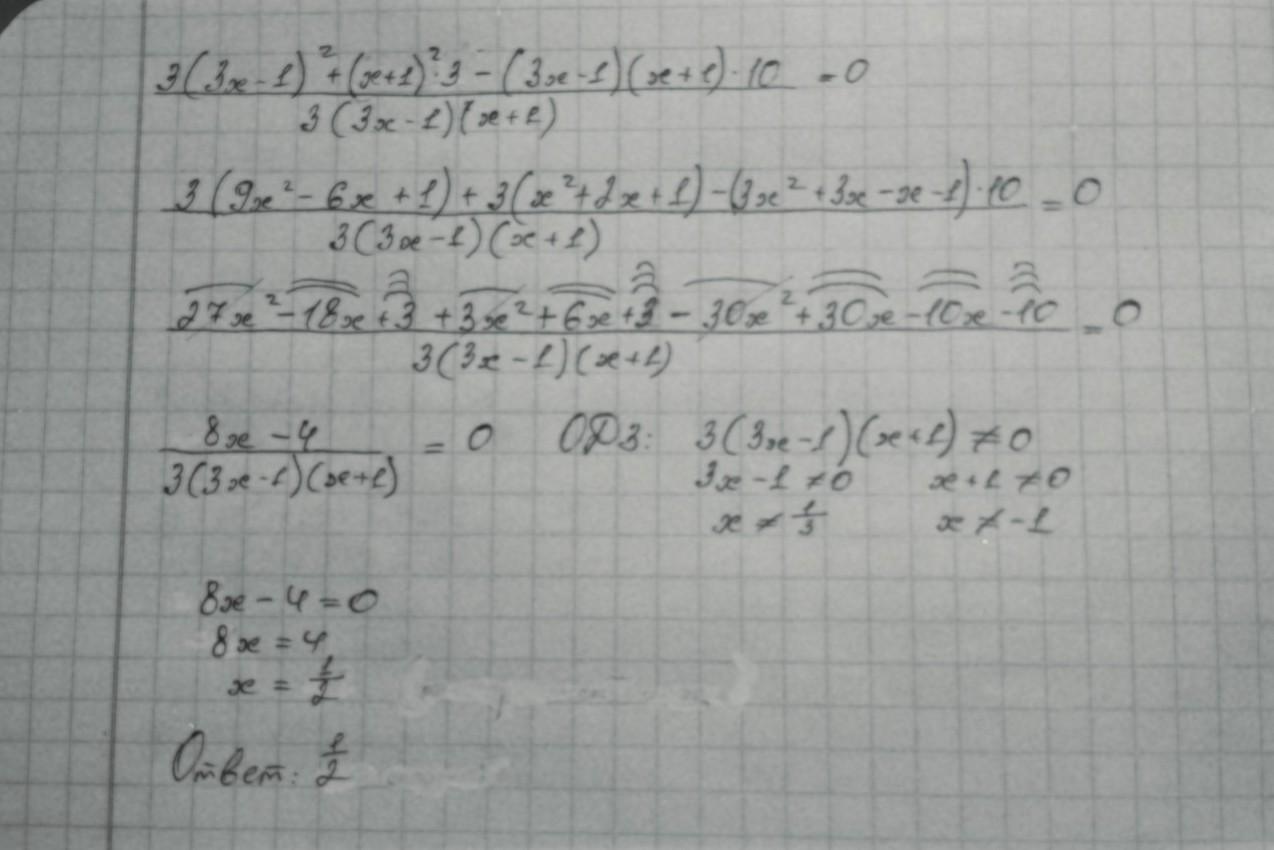 3(3x-1)²+(x+1)²·3-(3x-1)(x+1)·10 = 0
3(3x-1)(x+1)
3(9x²-6x+1)+3(x²+2x+1)-(3x²+3x-x-1)·10 = 0
3(3x-1)(x+1)
27x²-18x+3+3x²+6x+3-30x²+30x-10x-10 = 0
3(3x-1)(x+1)
8x-4 = 0 ОДЗ: 3(3x-1)(x+1)≠0
3(3x-1)(x+1) 3x-1≠0 x+1≠0
x≠1/3 x≠-1
8x-4=0
8x=4
x=1/2
Ответ: 1/2